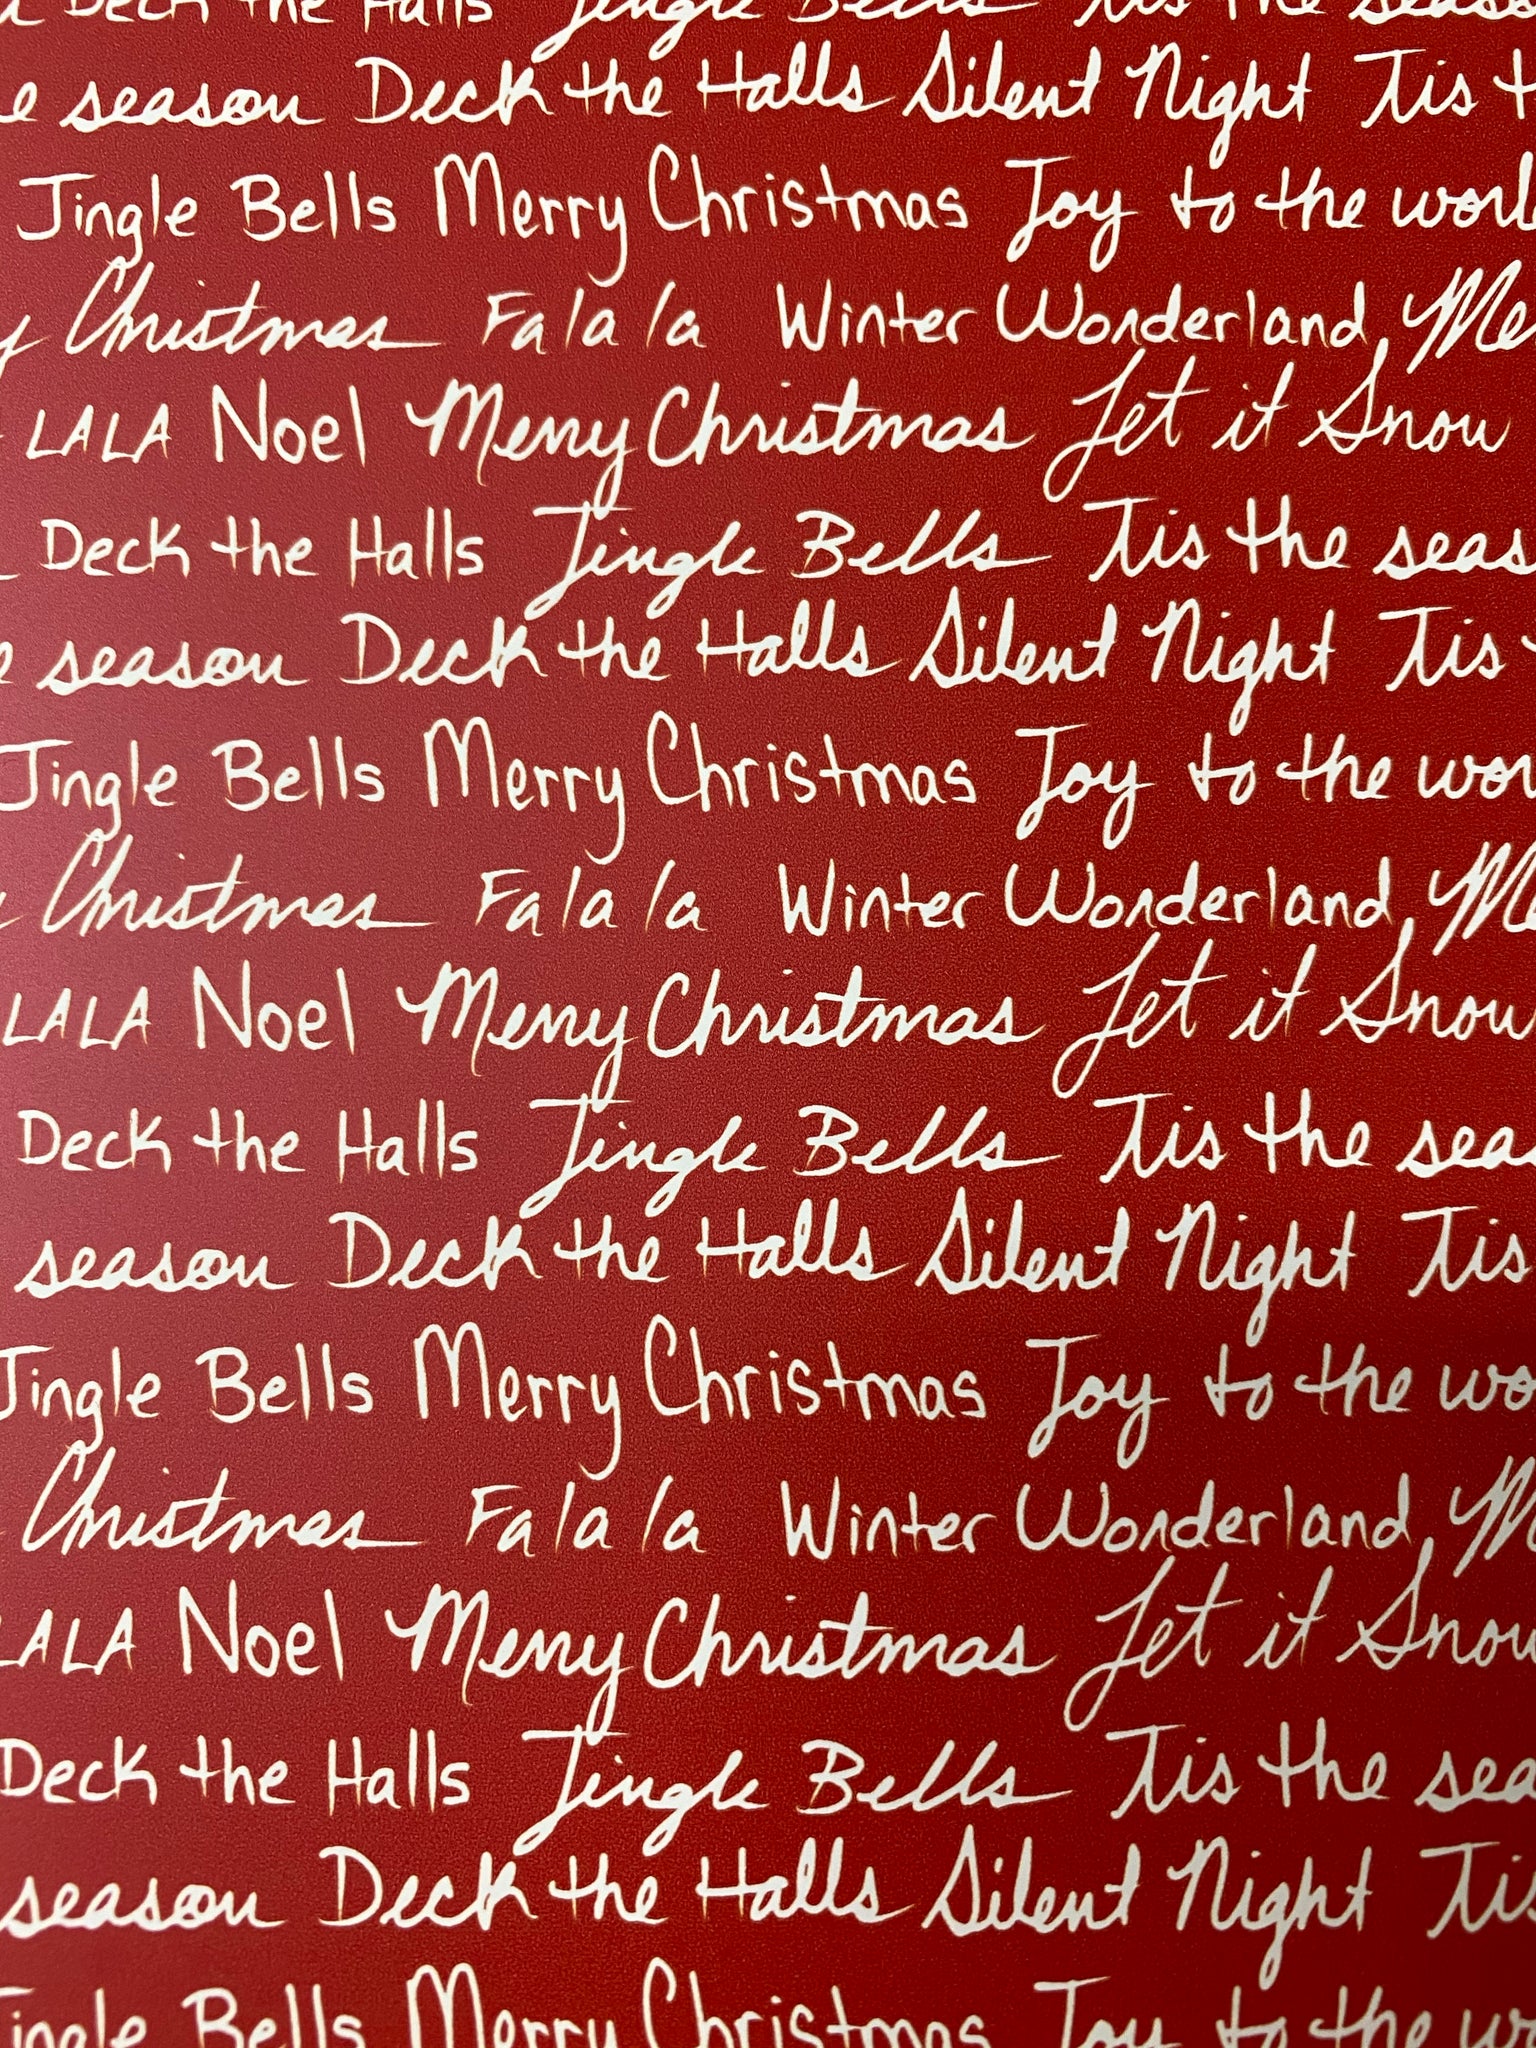 Deck the Halls Jingle Bells Tis the seas
season Deck the Halls Silent Night Tis
Jingle Bells Merry Christmas Joy to the worl
Christmas Fa la la Winter Wonderland Me
LALA Noel Merry Christmas Let it Snow
Deck the Halls Jingle Bells Tis the seas
season Deck the Halls Silent Night Tis
Jingle Bells Merry Christmas Joy to the wor
Christmas Fa la la Winter Wonderland Me
LALA Noel Merry Christmas Let it Snow
Deck the Halls Jingle Bells Tis the sea
season Deck the Halls Silent Night Tis
Jingle Bells Merry Christmas Joy to the wo
Christmas Fa la la Winter Wonderland M
LALA Noel Merry Christmas Let it Snow
Deck the Halls Jingle Bells Tis the sea
season Deck the Halls Silent Night Tis
Jingle Bells Merry Christmas Joy to the w